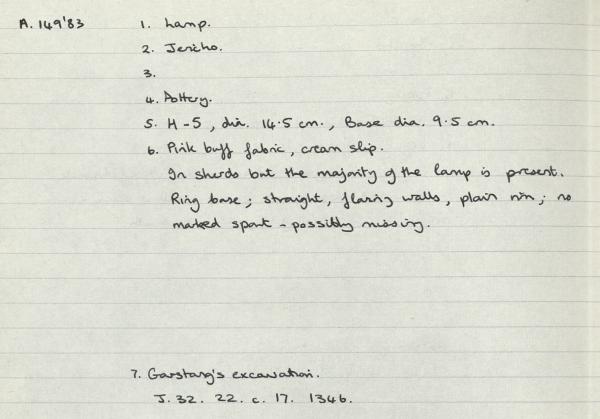 A. 149'83 1. Lamp.
2. Jericho.
3.
4. Pottery.
5. H-5, dia. 14.5 cm., Base dia. 9.5 cm.
6. Pink buff fabric, cream slip.
In sherds but the majority of the lamp is present.
Ring base; straight, flaring walls, plain rim; no
marked spout - possibly missing.
7. Garstang's excavation.
J. 32. 22. c. 17. 1346.